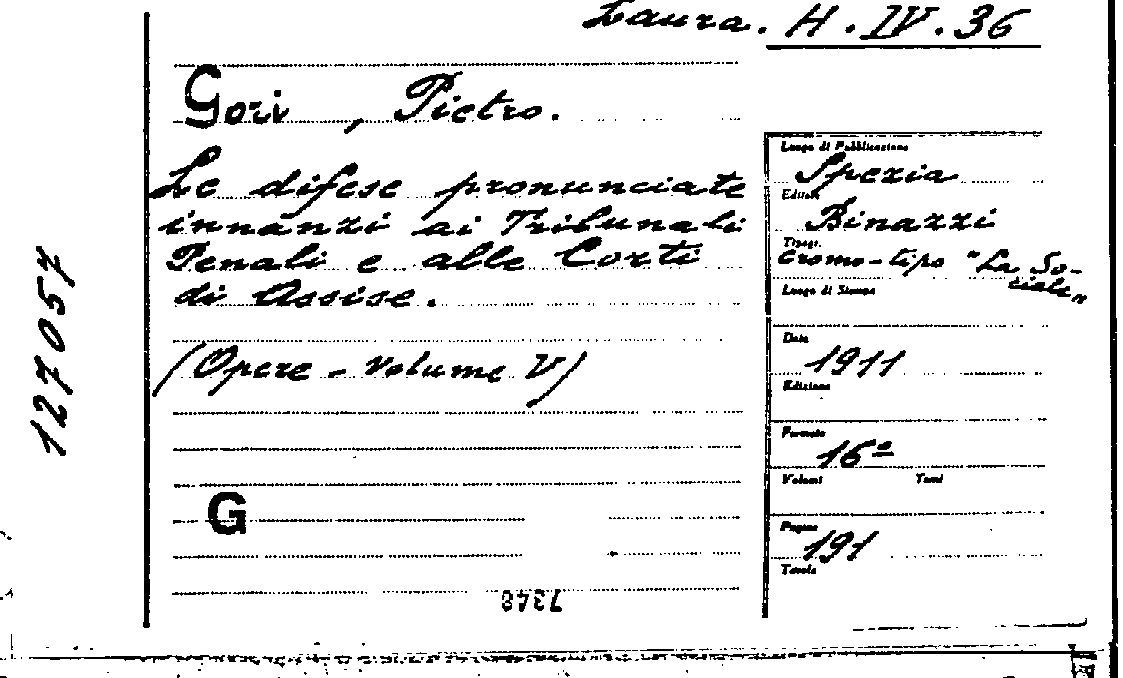 Laura. H. IV. 36
Gori, Pietro.
Le difese pronunciate
innanzi ai Tribunali
Penali e alle Corti
di Assise.
(Opere - Volume V)
G
7348
127057
Luogo di Pubblicazione
Spezia
Editore
Binazzi
Tipogr.
Cromo-tipo "La So-
ciale"
Luogo di Stampa
Data
1911
Edizione
Formato
16º
Volumi Tomi
Pagine
191
Tavole